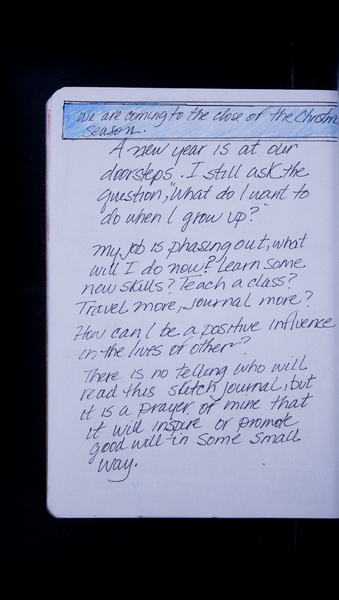 We are coming to the close of the Christm
season.
A new year is at our
doorsteps. I still ask the
question, "What do I want to
do when I grow up?"
My job is phasing out, what
will I do now? Learn some
new skills? Teach a class?
Travel more, journal more?
How can I be a positive influence
in the lives of other?
There is no telling who will
read this sketch journal, but
it is a prayer of mine that
it will inspire or promote
good will in some small
way.